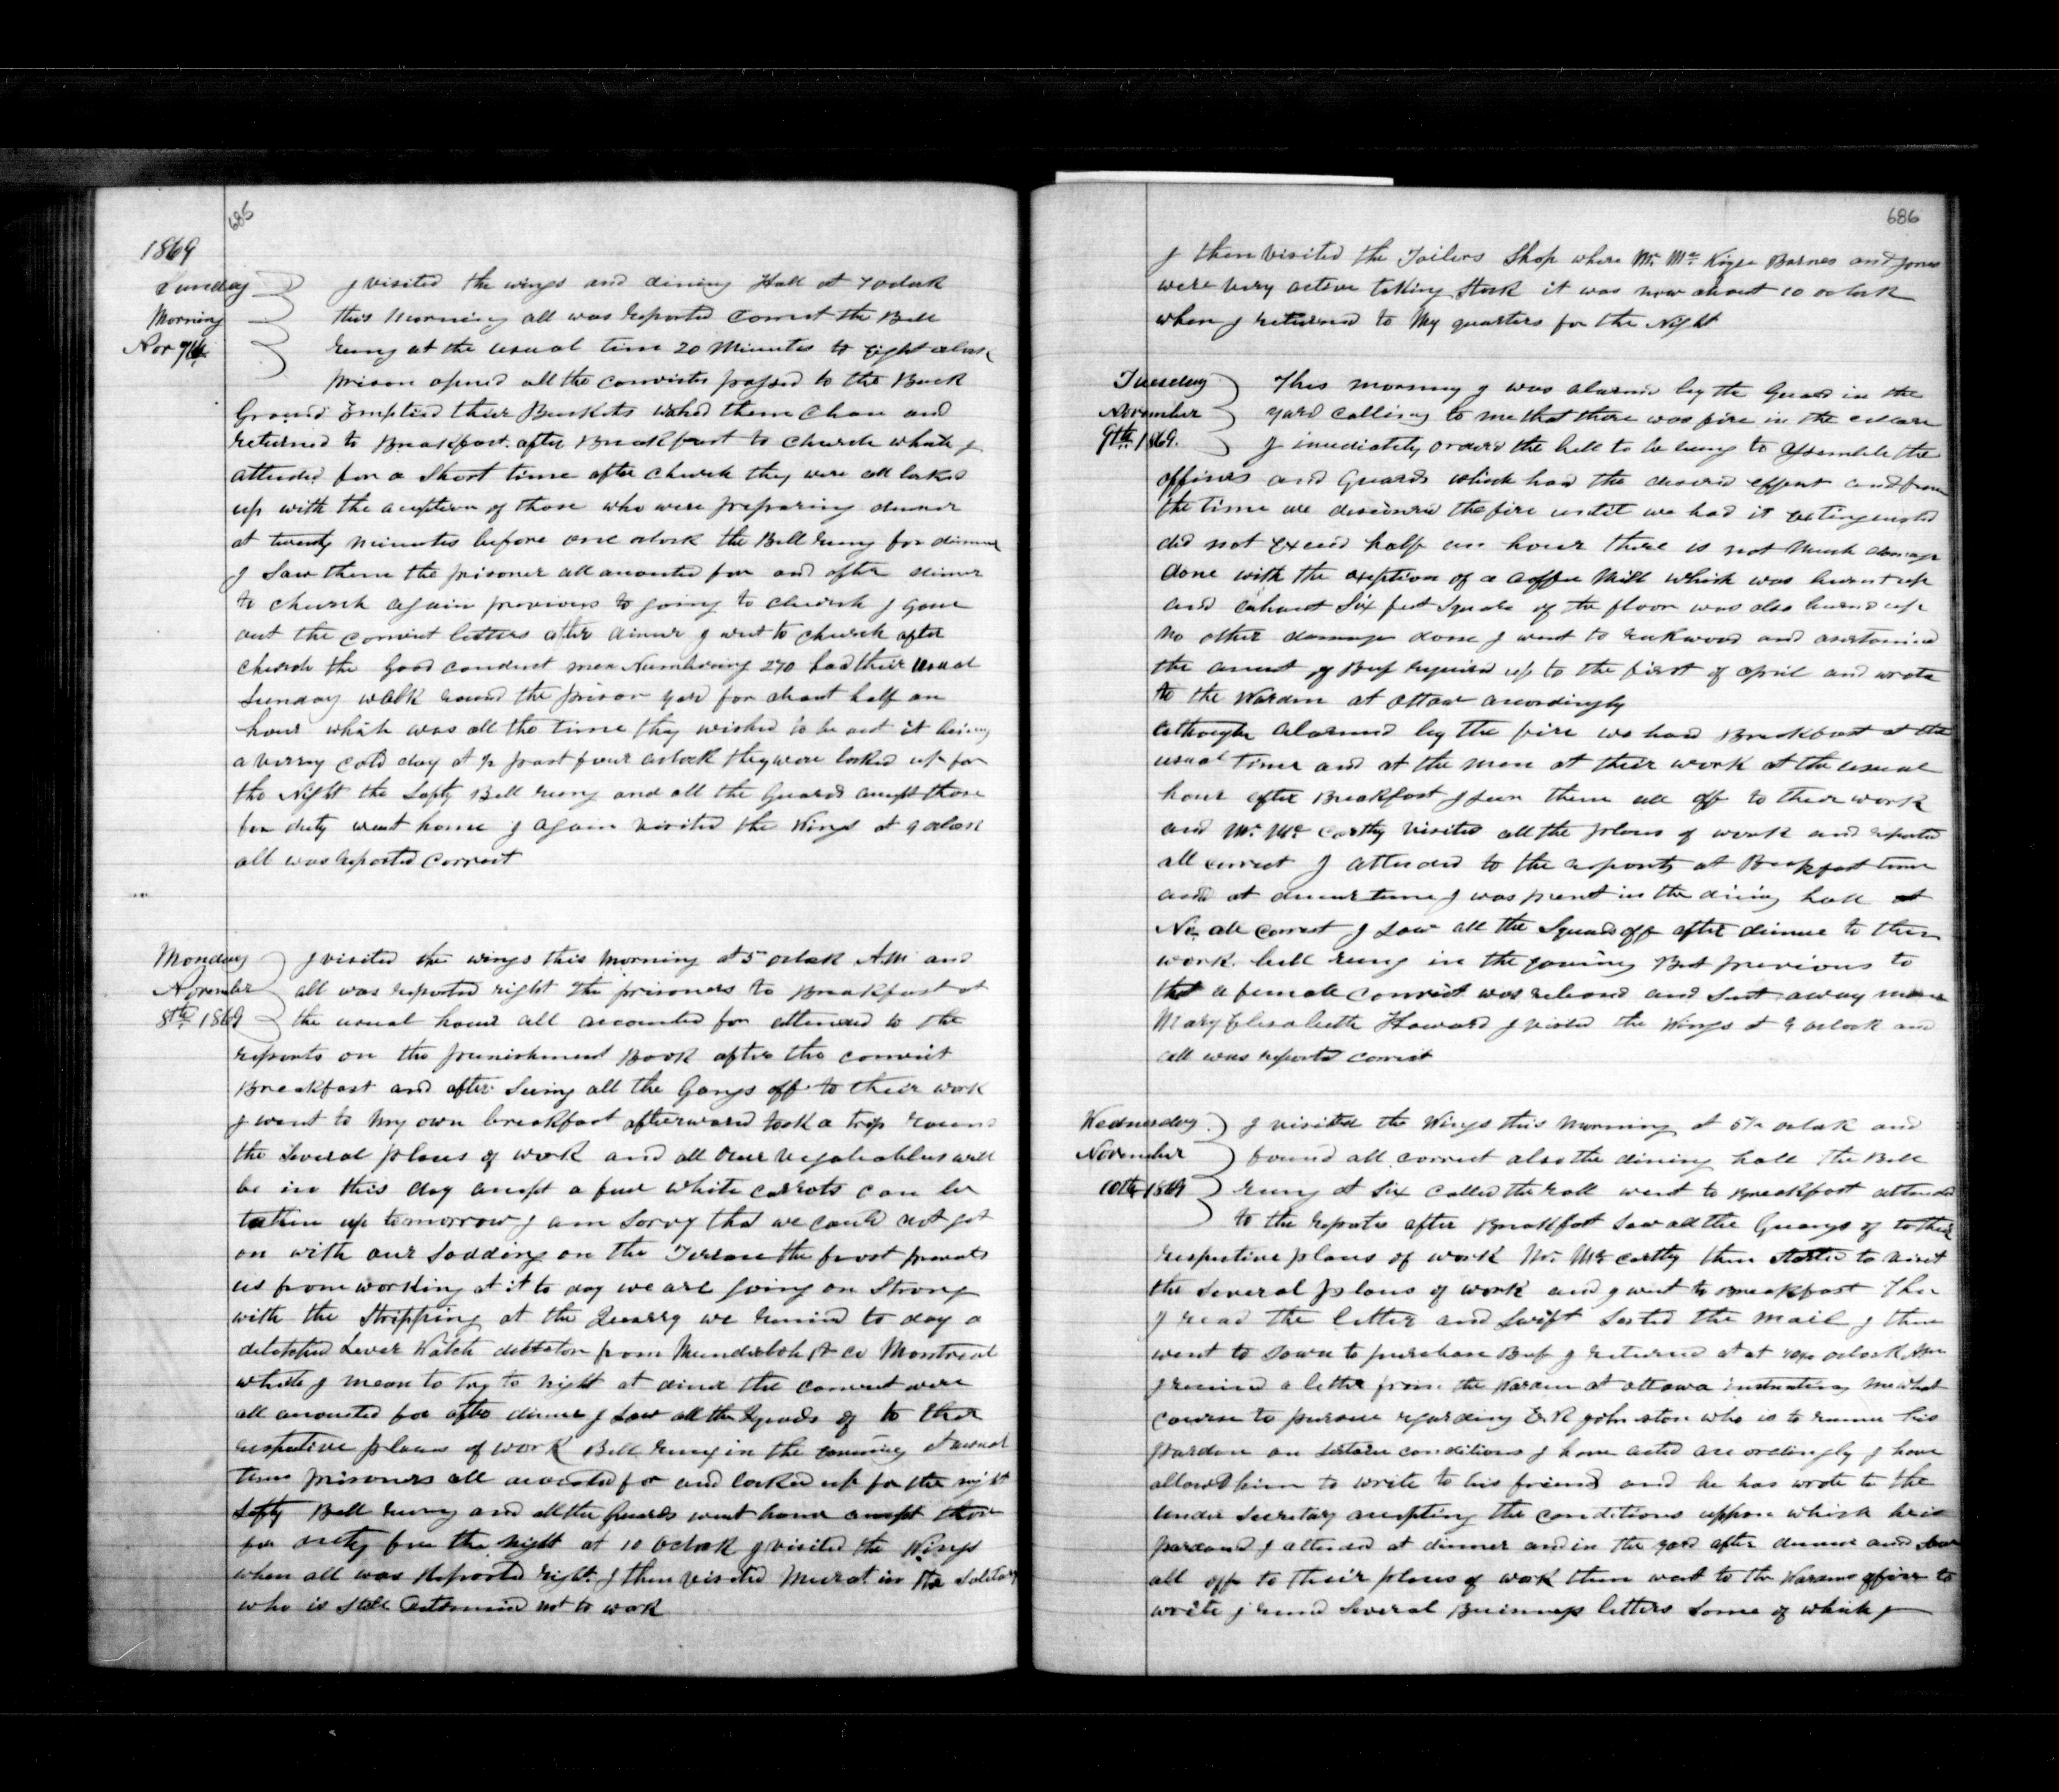 685
1869
Sunday I visited the wings and dining Hall at 7 oclock
Morning this morning all was reported correct the Bell
Nov 7th rung at the usual time 20 minutes to Eight oclock
prison opned all the convicts passed to the Back
Ground Emptied their Buckets washed them Clean and
returned to Breakfast. after Breakfast to church which I
attended for a Short time after church they were all locked
up with the aception of those who were preparing dinner
at twenty minutes before one oclock the Bell rung for dinner
I Saw them the prisoner all acounted for and after dinner
to church again previous to going to church I gave
out the convict letters after dinner I went to church after
church the Good conduct men Numbering 270 had their usual
Sunday walk round the prison yard for about half an
hour which was all the time they wished to be out it being
a verry cold day at ½ past four oclock they were locked up for
the Night the Safty Bell rung and all the Guards acept those
for duty went home I again visited the Wings at 9 oclock
all was reported correct
Monday I visited the wings this morning at 5 oclock AM and
November all was reported right the prisoners to Breakfast at
8th 1869 the usual hour all accounted for attended to the
reports on the punishment Book after the convict
Breakfast and after Seeing all the Gangs off to their work
I went to my own breakfast afterward took a trip round
the Several places of work and all our vegatables will
be in this day acept a few white carrots can be
tathen up tomorrow I am Sorry that we could not get
on with our Sodding on the Terrace the frost prevents
us from working at it to day we are going on Strong
with the Stripping at the Quarry we received to day a
detatched Lever Watch from & Co Montreal
which I mean to try to night at diner the convict were
all acounted for after dinner I Saw all the Squads of to their
respective places of work Bell rung in the evening at usual
time prisoners all acounted for and locked up for the night
Safty Bell rung and all the Guards went home acept those
for duty for the night at 10 Oclock I visited the Wings
when all was Reported right. I then visited Murat in the Solitary
who is still Determined not to work
686
I then visited the Tailors Shop where Mr. Barnes and Jones
were very active taking Stock it was now about 10 oclock
when I returned to My quarters for the Night
Tuesday This morning I was alarmd by the Guard in the
November yard calling to me that there was fire in the cellar
9th 1869. I imediately orderd the bell to be rung to assemble the
officers and Guards which had the desired effect and from
the time we discovered the fire until we had it extinguished
did not exceed half an hour there is not much damage
done with the exeption of a coffee Mill which was burnt up
and about Six feet Square of the floor was also burnd up
no other damage done I went to and asertained
the amount of Beef required up to the first of april and wrote
to the Warden at ottaw acordingly
although alarmed by the fire we had Breakfast at the
usual time and at the men at their work at the usual
hour after Breakfast I seen them all off to their work
and Mr. Mc. Carthy visited all the places of work and reported
all correct I attended to the reports at Breakfast time
and at dinner time I was present in the dining hall at
No. all correct I saw all the Squads off after dinner to their
work. bell rung in the evening But previous to
that a female convict was released and Sent away name
Mary Elisabeth Howard I visited the Wings at 9 oclock and
all was reported correct
Wednesday I visited the Wings this morning at 5½ oclock and
November found all correct also the dining hall the Bell
10th 1869 rung at Six called the roll went to Breakfast attended
to the reports after Breakfast Saw all the Guangs of to their
respective places of work Mr. Mc. Carthy then started to visit
the Several places of work and I went to Breakfast Then
I read the letter and Swift Sorted the mail I then
went to down to purchase Beef I returned at at oclock Am
I received a letter from the Warden at ottawa instructing me what
course to pursue regarding Johnston who is to receive his
pardon on certain conditions I have acted acordingly I have
allowd him to write to his friends and he has wrote to the
under Secretary acepting the conditions uppon which he is
pardoned I attended at dinner and in the yard after dinner and saw
all off to their places of work then went to the Wardens office to
write I read Several Buisness letters Some of which I